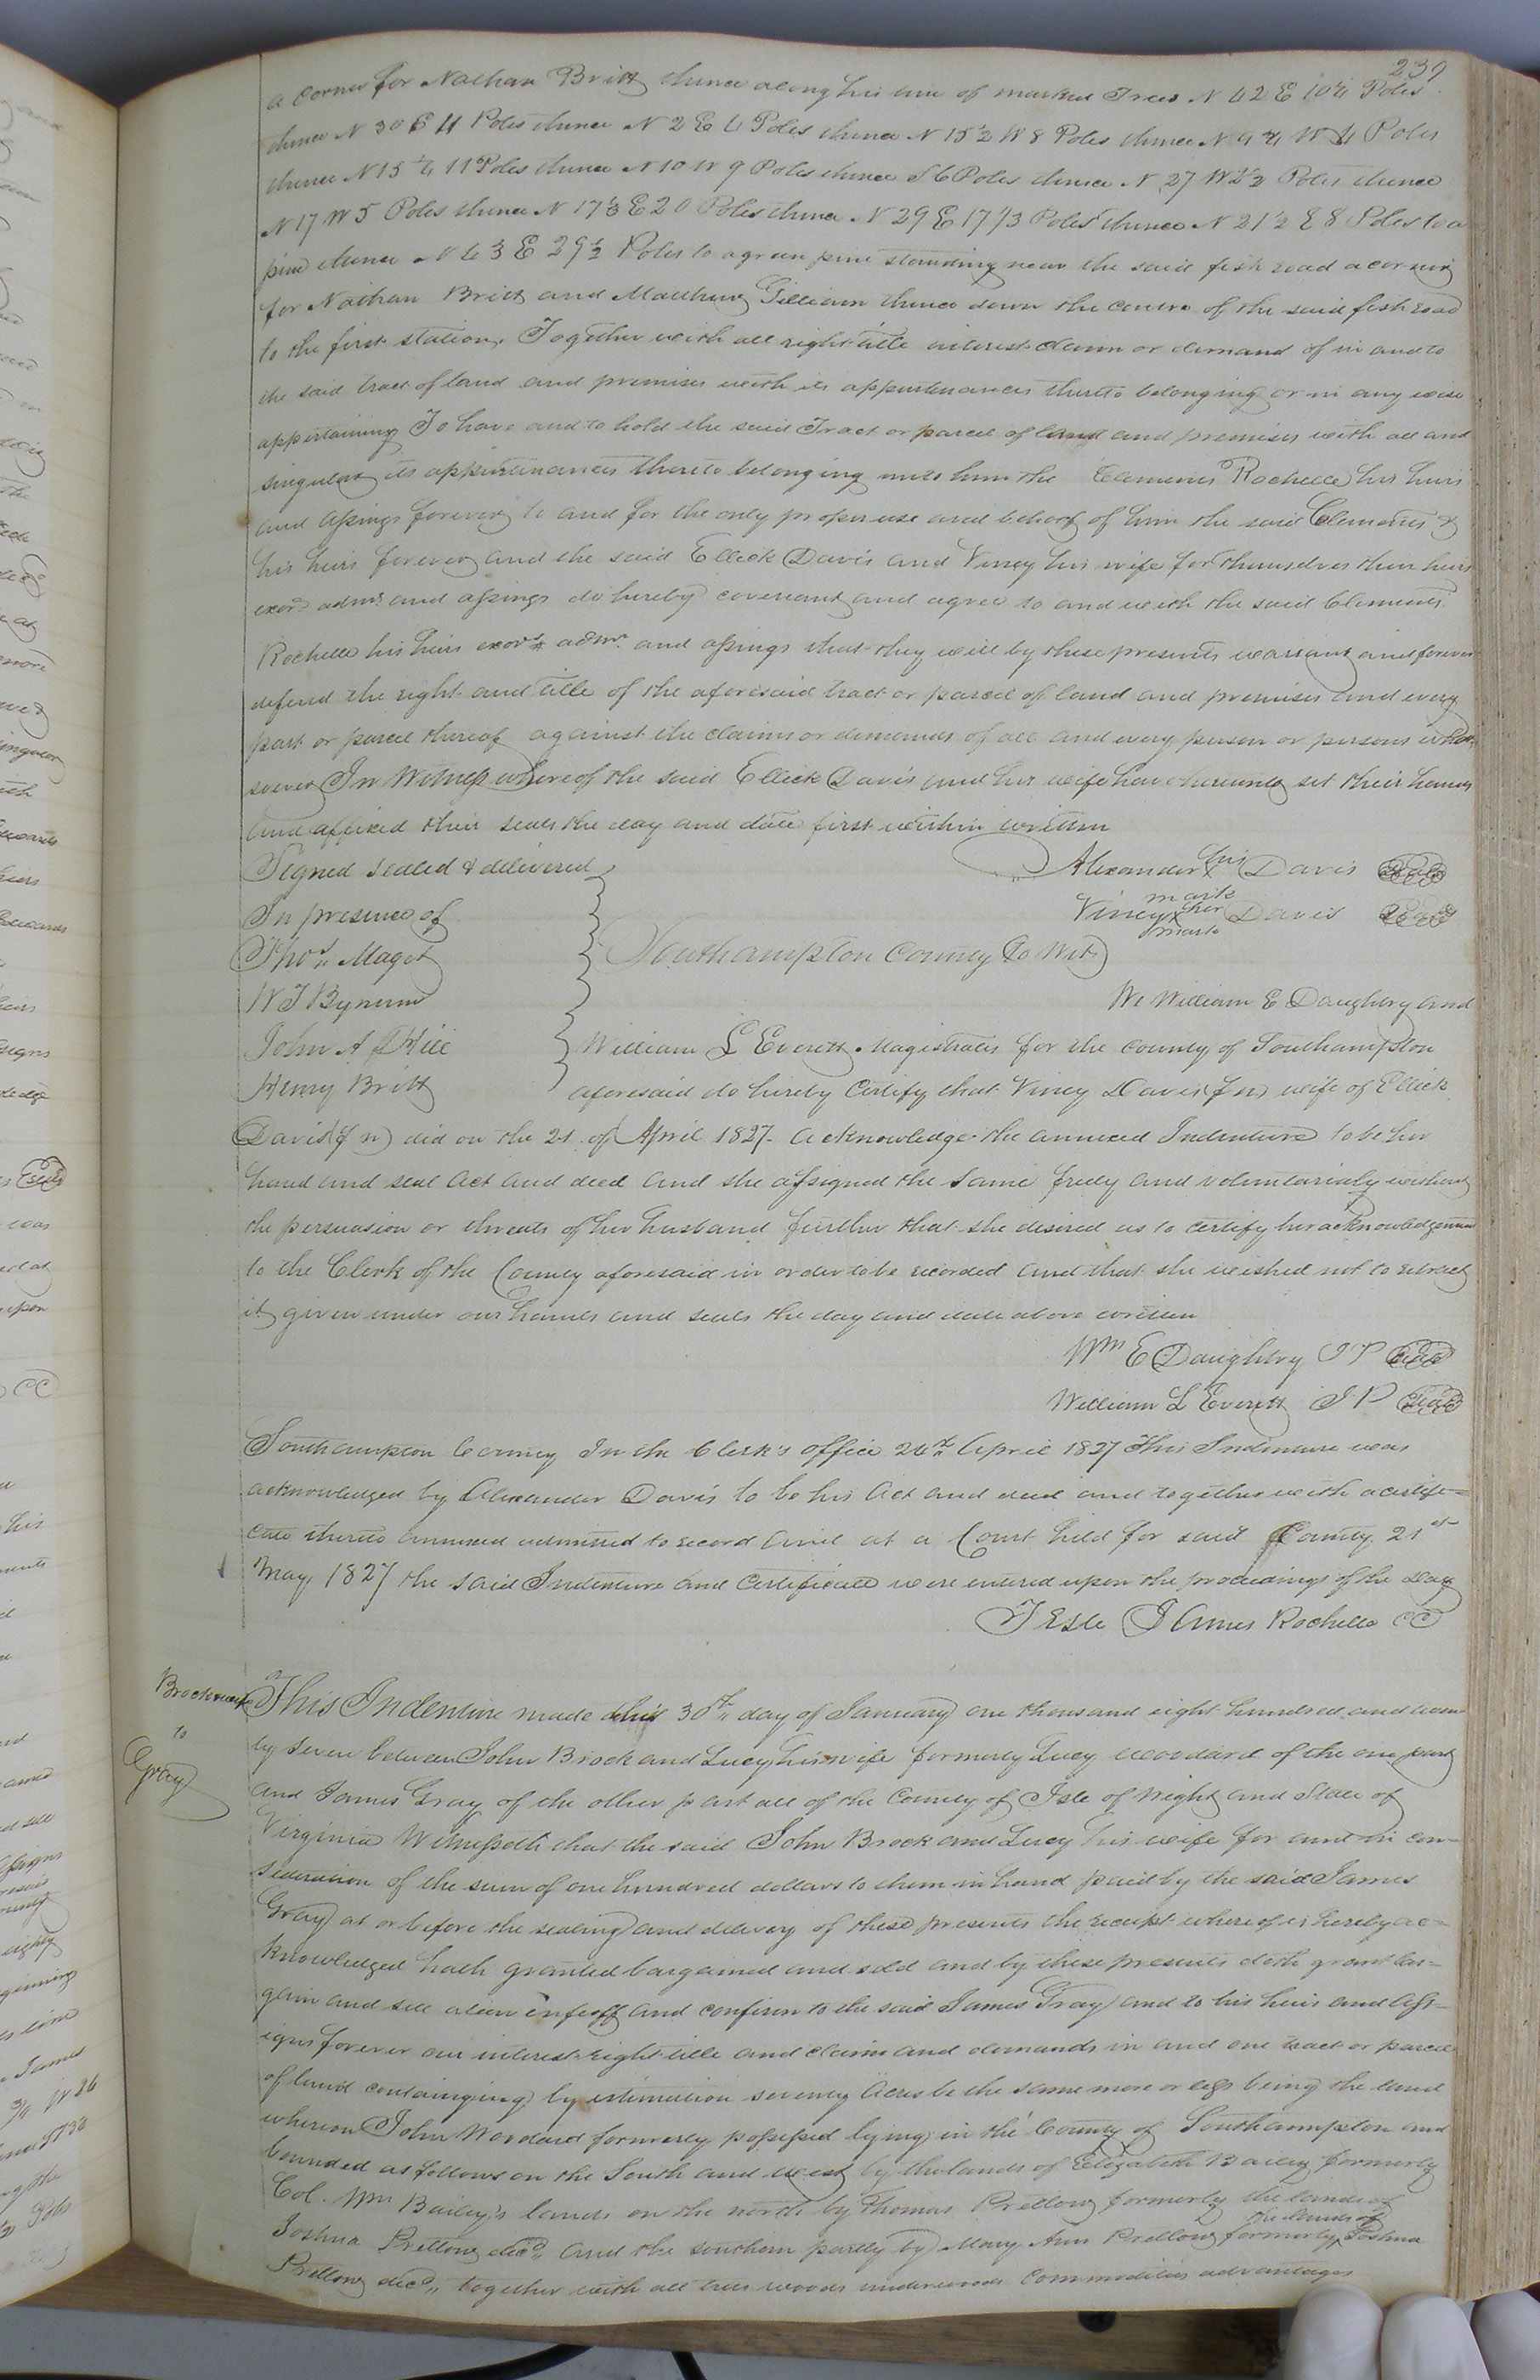 239
a corner for Nathan Britt thence along his line of marked Trees N 42 E 10¼ Poles
thence N 30 E 11 Poles thence N 2 E 4 Poles thence N 15½ W 8 Poles thence N 9¼ W 4 Poles
thence N 15¼ 11 Poles thence N 10 W 9 Poles thence S 6 Poles thence N 27 W 2½ Poles thence
N 17 W 5 Poles thence N 17⅓ E 20 Poles thence N 29 E 17 1/3 Poles thence N 21½ E 8 Poles to a
pine thence N 43 E 29½ Poles to a green pine standing near the said fish road a corner
for Nathan Britt and Matthew Gilliam thence down the centre of the said fish road
to the first station. Together with all right title interest claim or demand of in and to
the said tract of land and premises with its appurtenances thereto belonging or in any wise
appertaining To have and to hold the said Tract or parcel of land and premises with all and
singular its appurtenances thereto belonging unto him the Clements Rochelle his heirs
and assings forever to and for the only proper use and behoof of him the said Clements &
his heirs forever and the said Ellick Davis and Viney his wife for themselves their heirs
exors adms and assings do hereby covenant and agree to and with the said Clements
Rochelle his heirs exors & adms and assings that they will by these presents warrant and forever
defend the right and title of the aforesaid tract or parcel of land and premises and every
part or parcel thereof against the claims or demands of all and every person or persons what-
soever In Witness whereof the said Ellick Davis and his wife have hereunto set their hands
and affixed their seals the day and date first within written
Signed sealed & delivered
In presence of
Thos Maget
W J Bynum
John A Hill
Henry Britt
Alexander his X mark Davis Seal
Viney her X mark Davis Seal
Southampton County To Wit
We William E Daughtry and
William L Everett Magistrates for the county of Southampton
aforesaid do hereby Certify that Viney Davis (f n) wife of Ellick
Davis (f n) did on the 21 of April 1827 acknowledge the annexed Indenture to be her
hand and seal Act and deed and she assigned the same freely and voluntarialy without
the persuasion or threats of her husband further that she desired us to certify her acknowledgement
to the Clerk of the County aforesaid in order to be recorded and that she wished not to retract
it given under our hands and seals the day and date above written
Wm E Daughtry J P Seal
William L Everett J P Seal
Southampton County In the Clerk's office 24th April 1827 This Indenture was
acknowledged by Alexander Davis to be his Act and deed and together with a certifi-
cate thereto annexed admitted to record and at a Court held for said County 21st
May 1827 the said Indenture and Certificate were entered upon the proceedings of the Day
Teste James Rochelle CC
Brock &
to
Gray
This Indenture made this 30th day of January one thousand eight hundred and twen
ty seven between John Brock and Lucy his wife formerly Lucy Woodard of the one part
and James Gray of the other part all of the County of Isle of Wight and State of
Virginia Witnesseth that the said John Brock and Lucy his wife for and in con-
sideration of the sum of one hundred dollars to them in hand paid by the said James
Gray at or before the sealing and delivery of these presents the receipt whereof is hereby ac-
knowledged hath granted bargained and sold and by these presents doth grant bar-
gain and sell alien enfeoff and confirm to the said James Gray and to his heirs and ass-
igns forever our interest right title and claim and demands in and one tract or parcel
of land containging by estimation seventy Acres be the same more or less being the land
whereon John Woodard formerly possessed lying in the County of Southampton and
bounded as follows on the South and west by the lands of Elizabeth Bailey formerly
Col. Wm Bailey's lands on the north by Thomas Pretlow formerly the lands of
Joshua Pretlow decd and the southern partly by Mary Ann Pretlow formerly the lands of Joshua
Pretlow decd together with all trees woods underwoods commodities advantages